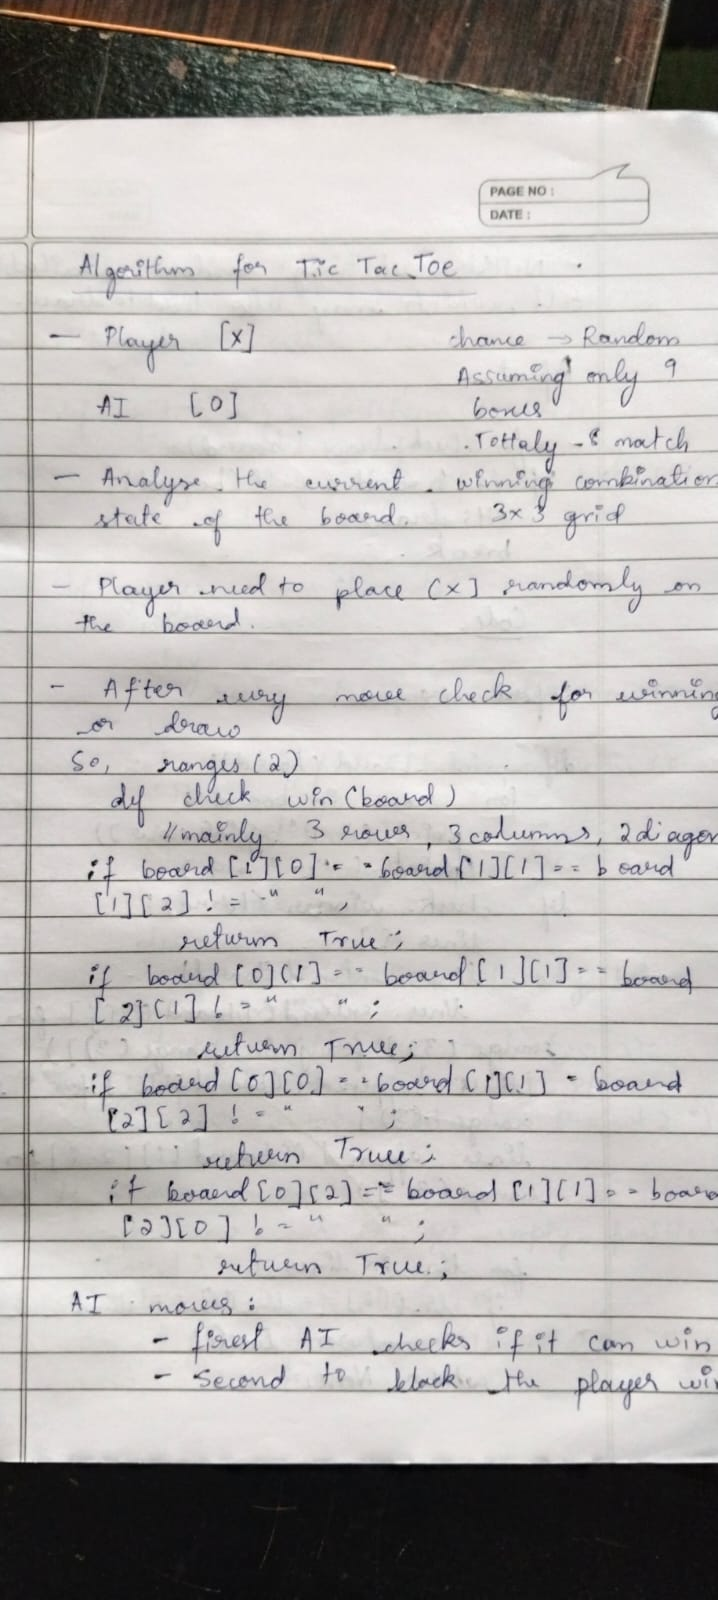 PAGE NO :
DATE :
Algorithm for Tic Tac Toe
- Player [X] chance → Random
Assuming only 9
AI [O] boxes
. Tottaly - 8 match
- Analyse the current . winning combination
state of the board. 3x3 grid
- Player need to place (x] randomly on
the board.
- After every move check for winning
or draw
So, ranges (2)
def check win (board)
// mainly 3 rows, 3 columns, 2 diagon
if board [1][0] == board [1][1] == board
[1][2] ! = " " ;
return True ;
if board [0][1] == board [1][1] == board
[2][1] ! = " " ;
return True ;
if board [0][0] == board [1][1] = board
[2][2] ! = " " ;
return True ;
if board [0][2] == board [1][1] == board
[2][0] ! = " " ;
return True ;
AI moves :
- first AI checks if it can win
- Second to block the player wi